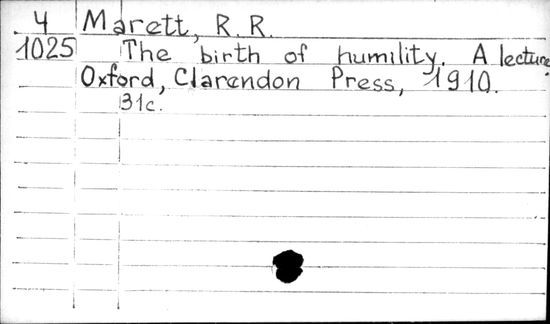 4 Marett, R. R.
1025 The birth of humility. A lecture
Oxford, Clarendon Press, 1910.
31c.